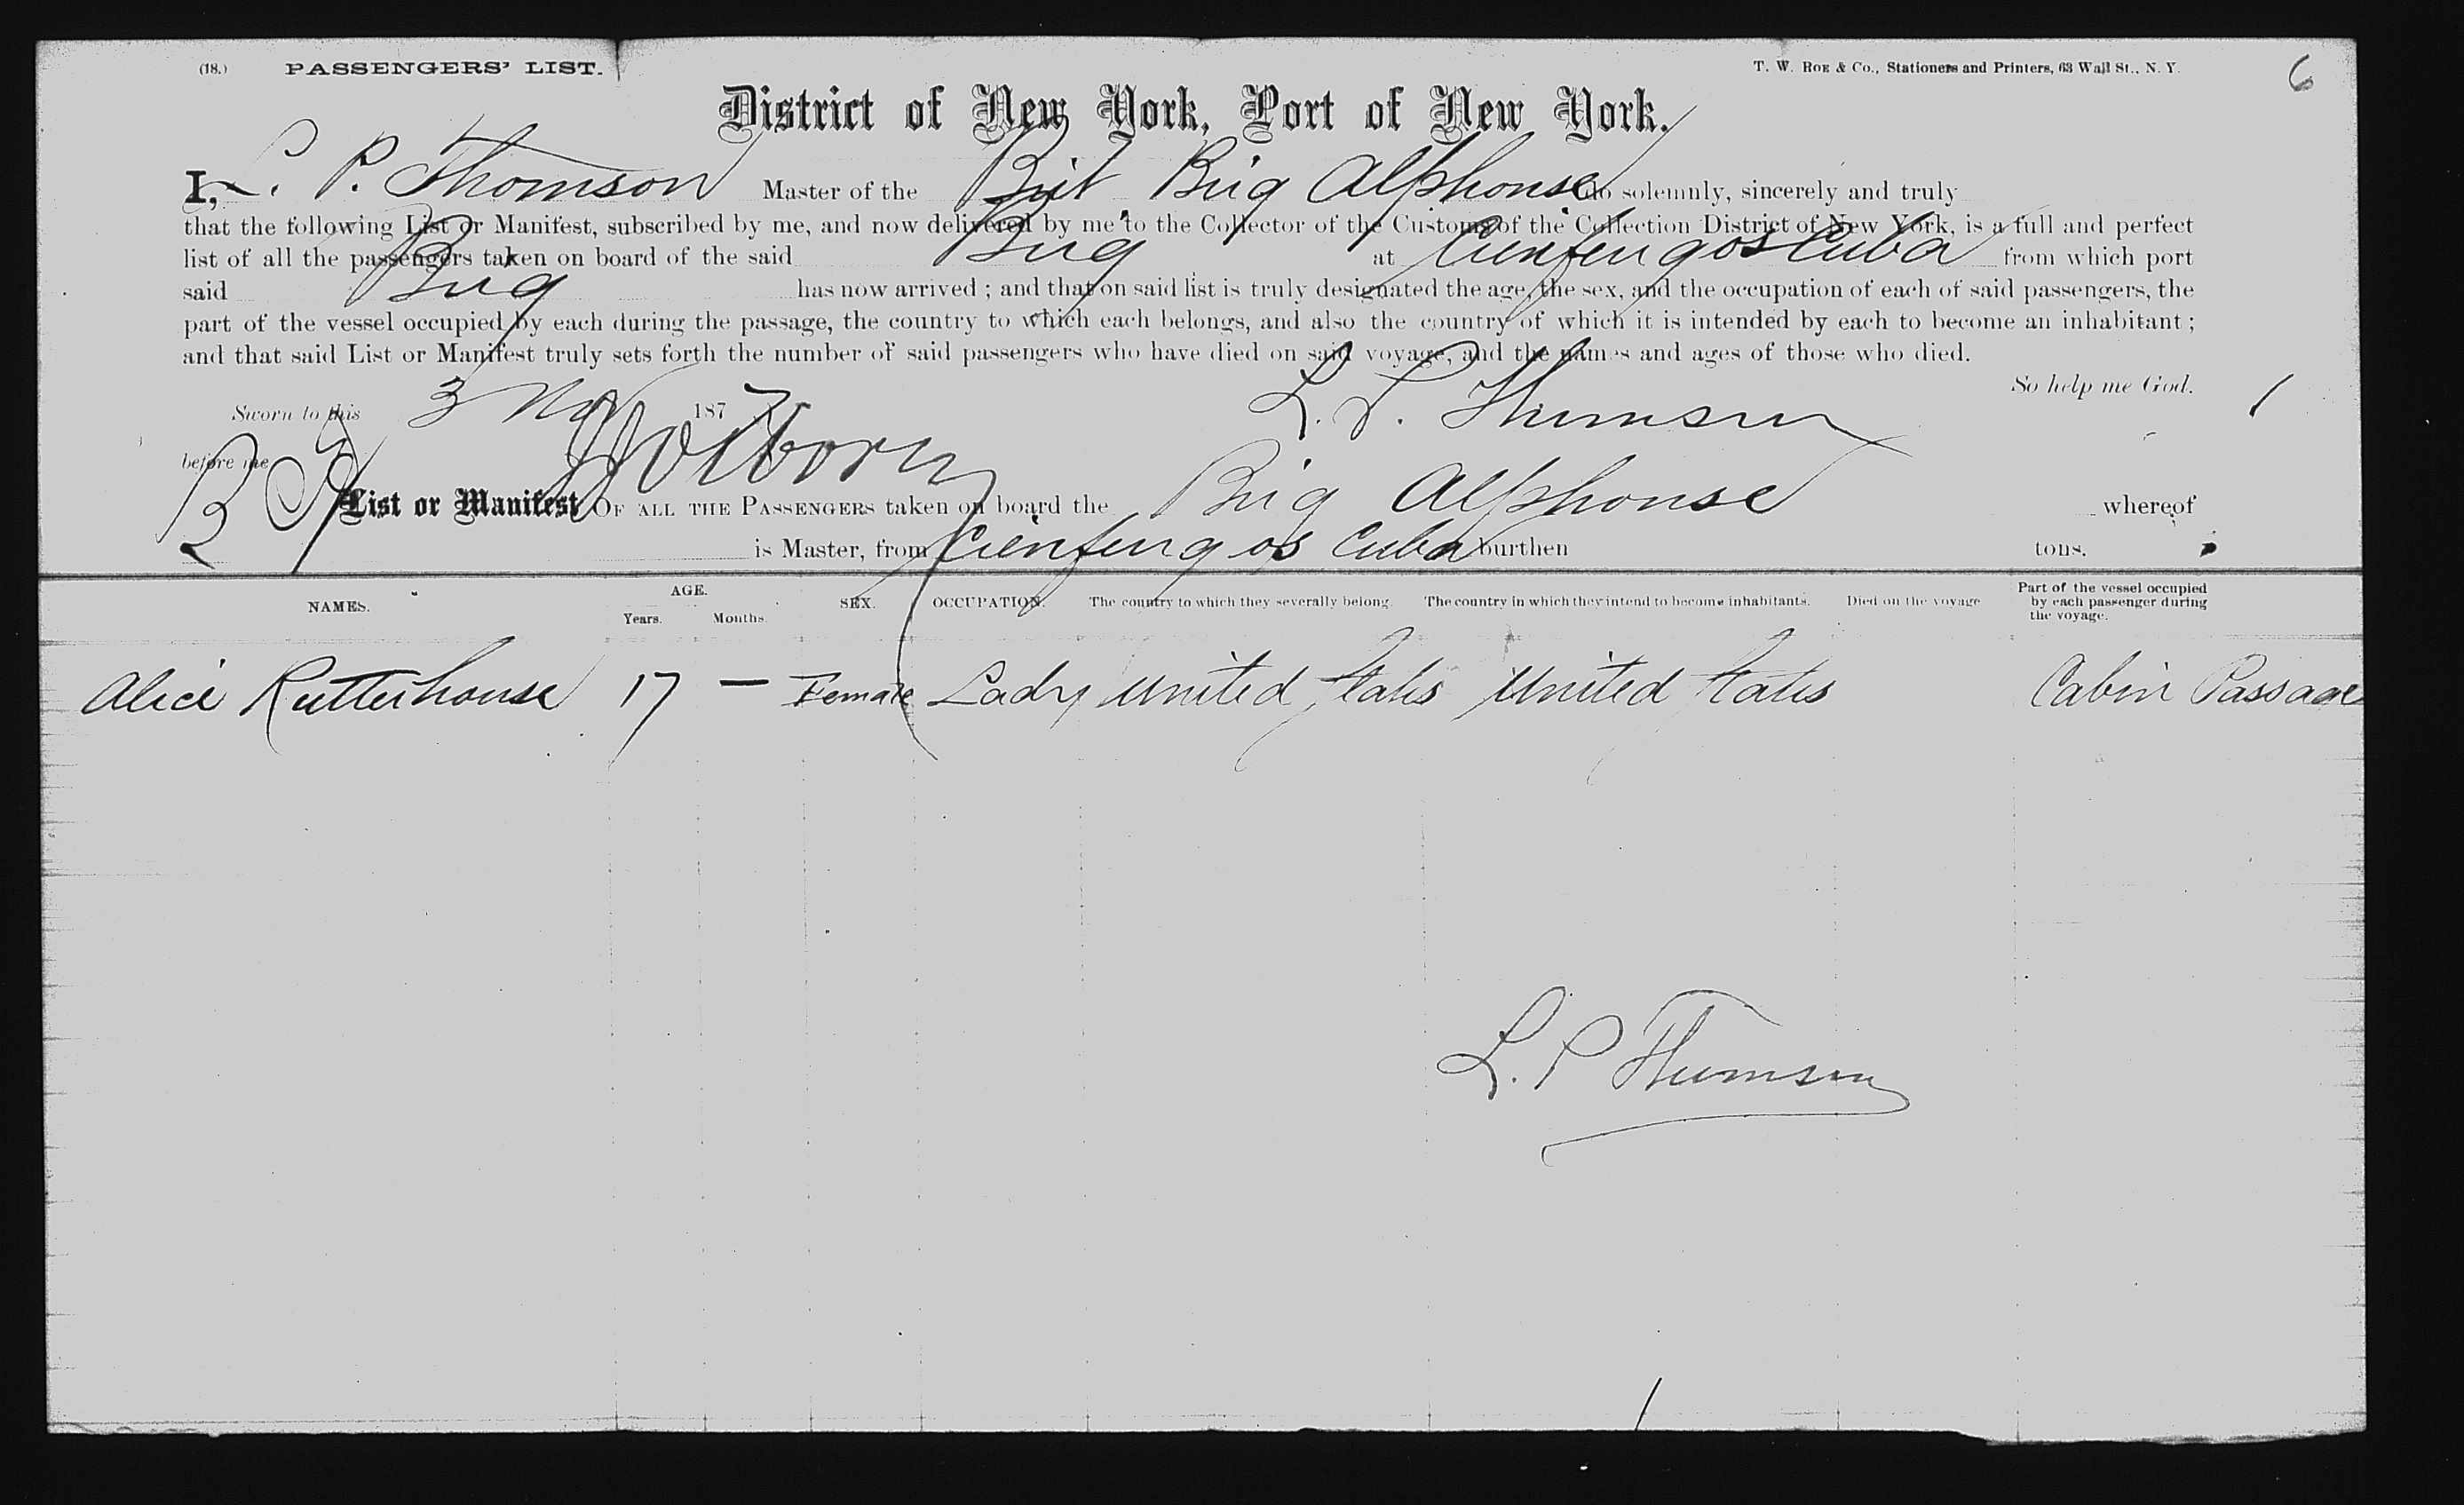 (18.) PASSENGERS' LIST. T. W. ROE & Co., Stationers and Printers, 63 Wall St., N. Y. 6
District of New York, Port of New York.
I, L. P. Thomson Master of the Brit. Brig Alphonse do solemnly, sincerely and truly
that the following List or Manifest, subscribed by me, and now delivered by me to the Collector of the Customs of the Collection District of New York, is a full and perfect
list of all the passengers taken on board of the said Brig at Cienfeugos Cuba from which port
said Brig has now arrived ; and that on said list is truly designated the age, the sex, and the occupation of each of said passengers, the
part of the vessel occupied by each during the passage, the country to which each belongs, and also the country of which it is intended by each to become an inhabitant ;
and that said List or Manifest truly sets forth the number of said passengers who have died on said voyage, and the names and ages of those who died.
So help me God. 1
Sworn to this 3 1877 L. P. Thomson
before me
List or Manifest OF ALL THE PASSENGERS taken on board the Brig Alphonse whereof
is Master, from Cienfeugos Cuba burthen tons.
NAMES. AGE. Years. Months. SEX. OCCUPATION. The country to which they severally belong. The country in which they intend to become inhabitants. Died on the voyage Part of the vessel occupied by each passenger during the voyage.
Alice Rutterhouse 17 — Female Lady United States United States Cabin Passage
L. P Thomson
1